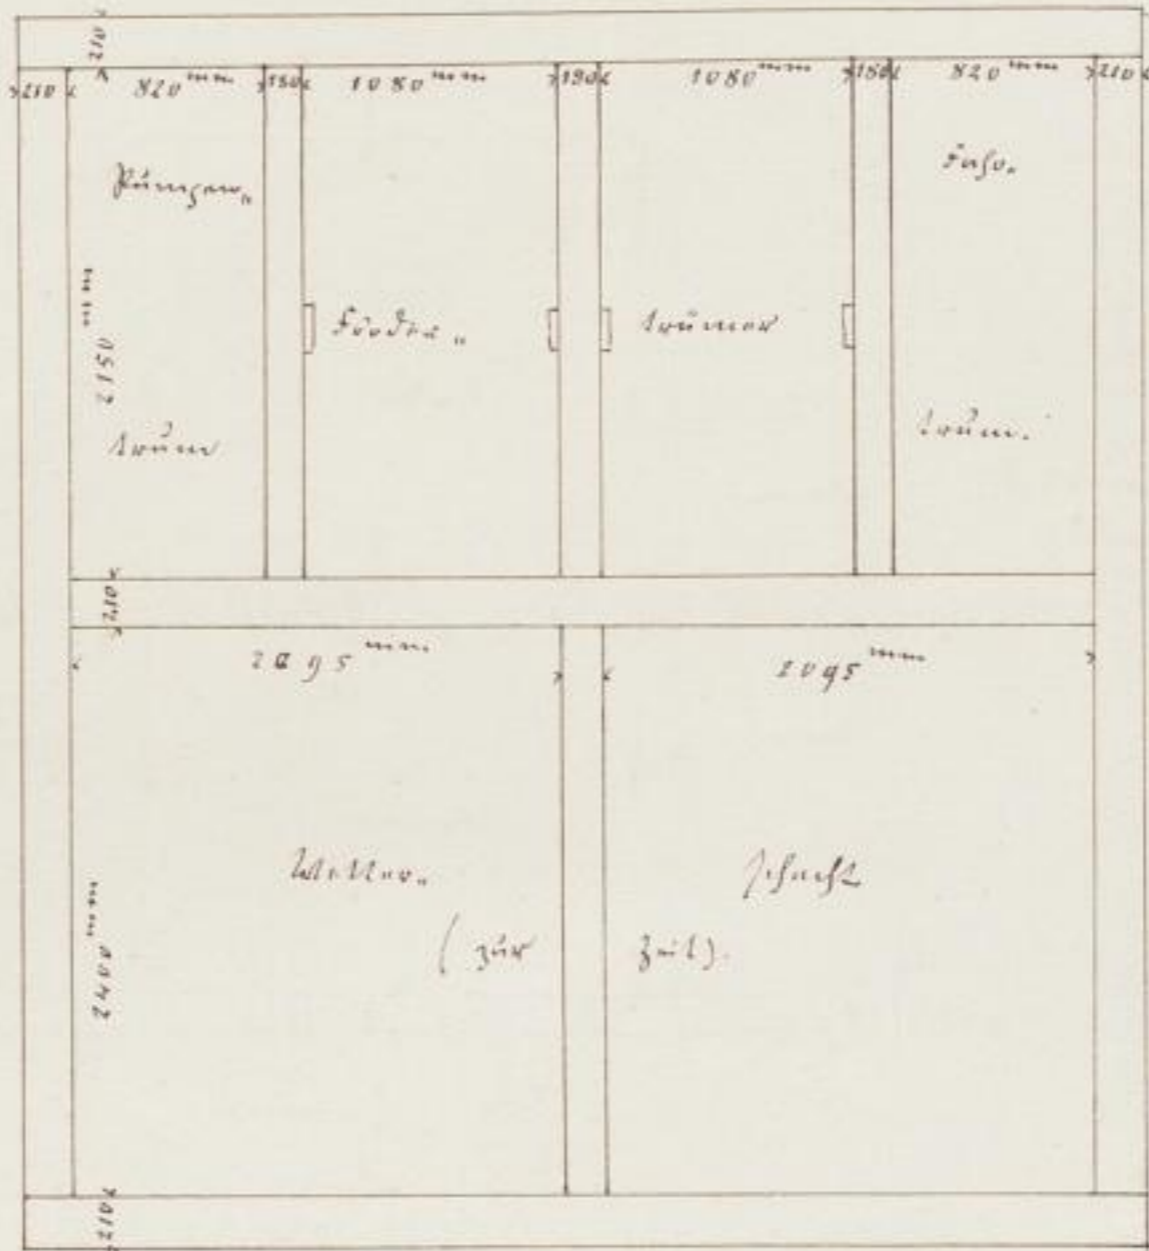 210
210 820 mm 180 1080 mm 190 1080 mm 180 820 mm 210
Pumpen-
Fahr-
2150 mm
Förder-
trümer
trum
trum.
210
2095 mm
2095 mm
Wetter-
schacht
(zur
Zeit).
2400 mm
210